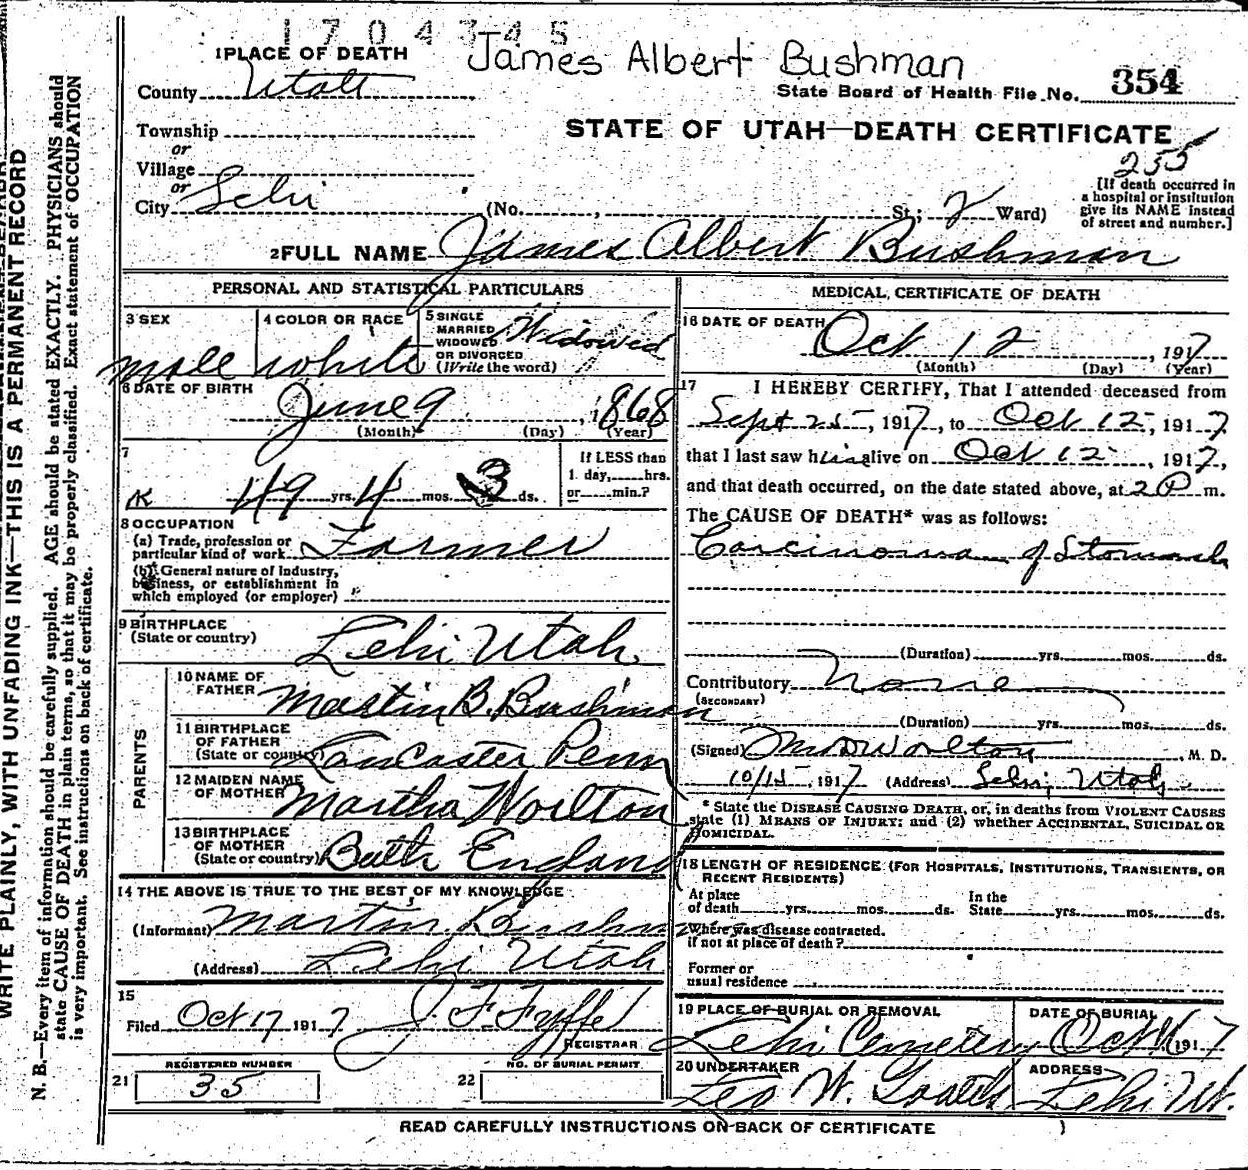 1704345
James Albert Bushman
1 PLACE OF DEATH
County Utah
State Board of Health File No. 354
Township
or
Village
or
City Lehi
STATE OF UTAH—DEATH CERTIFICATE
255
[If death occurred in
a hospital or institution
give its NAME instead
of street and number.]
(No. , St.; 2 Ward)
2 FULL NAME James Albert Bushman
PERSONAL AND STATISTICAL PARTICULARS
3 SEX male
4 COLOR OR RACE white
5 SINGLE
MARRIED
WIDOWED
OR DIVORCED
(Write the word) Widowed
6 DATE OF BIRTH
June 9, 1868
(Month) (Day) (Year)
7
49 yrs. 4 mos. 3 ds.
If LESS than
1 day, hrs.
or min.?
8 OCCUPATION
(a) Trade, profession or
particular kind of work Farmer
(b) General nature of Industry,
business, or establishment in
which employed (or employer)
9 BIRTHPLACE
(State or country) Lehi Utah
PARENTS
10 NAME OF
FATHER Martin B. Bushman
11 BIRTHPLACE
OF FATHER
(State or country) Lancaster Penn
12 MAIDEN NAME
OF MOTHER Martha Worlton
13 BIRTHPLACE
OF MOTHER
(State or country) Bath England
14 THE ABOVE IS TRUE TO THE BEST OF MY KNOWLEDGE
(Informant) Martin Bushman
(Address) Lehi Utah
15
Filed Oct 17 1917 J. F. Fyffe
REGISTRAR
REGISTERED NUMBER
21 35
NO. OF BURIAL PERMIT
22
MEDICAL CERTIFICATE OF DEATH
16 DATE OF DEATH
Oct 12, 1917
(Month) (Day) (Year)
17 I HEREBY CERTIFY, That I attended deceased from
Sept 25, 1917, to Oct 12, 1917
that I last saw him alive on Oct 12, 1917,
and that death occurred, on the date stated above, at 2 P m.
The CAUSE OF DEATH* was as follows:
Carcinoma of Stomach
(Duration) yrs. mos. ds.
Contributory None
(SECONDARY)
(Duration) yrs. mos. ds.
(Signed) Worlton, M. D.
10/15 1917 (Address) Lehi, Utah
* State the DISEASE CAUSING DEATH, or, in deaths from VIOLENT CAUSES
state (1) MEANS OF INJURY; and (2) whether ACCIDENTAL, SUICIDAL OR
HOMICIDAL.
18 LENGTH OF RESIDENCE (FOR HOSPITALS, INSTITUTIONS, TRANSIENTS, OR
RECENT RESIDENTS)
At place
of death yrs. mos. ds.
In the
State yrs. mos. ds.
Where was disease contracted.
if not at place of death?
Former or
usual residence
19 PLACE OF BURIAL OR REMOVAL
Lehi Cemetery
DATE OF BURIAL
Oct 16 1917
20 UNDERTAKER
Leo W. Goates
ADDRESS
Lehi Ut.
READ CAREFULLY INSTRUCTIONS ON BACK OF CERTIFICATE
WRITE PLAINLY, WITH UNFADING INK—THIS IS A PERMANENT RECORD
N. B.—Every item of information should be carefully supplied. AGE should be stated EXACTLY. PHYSICIANS should
state CAUSE OF DEATH in plain terms, so that it may be properly classified. Exact statement of OCCUPATION
is very important. See instructions on back of certificate.